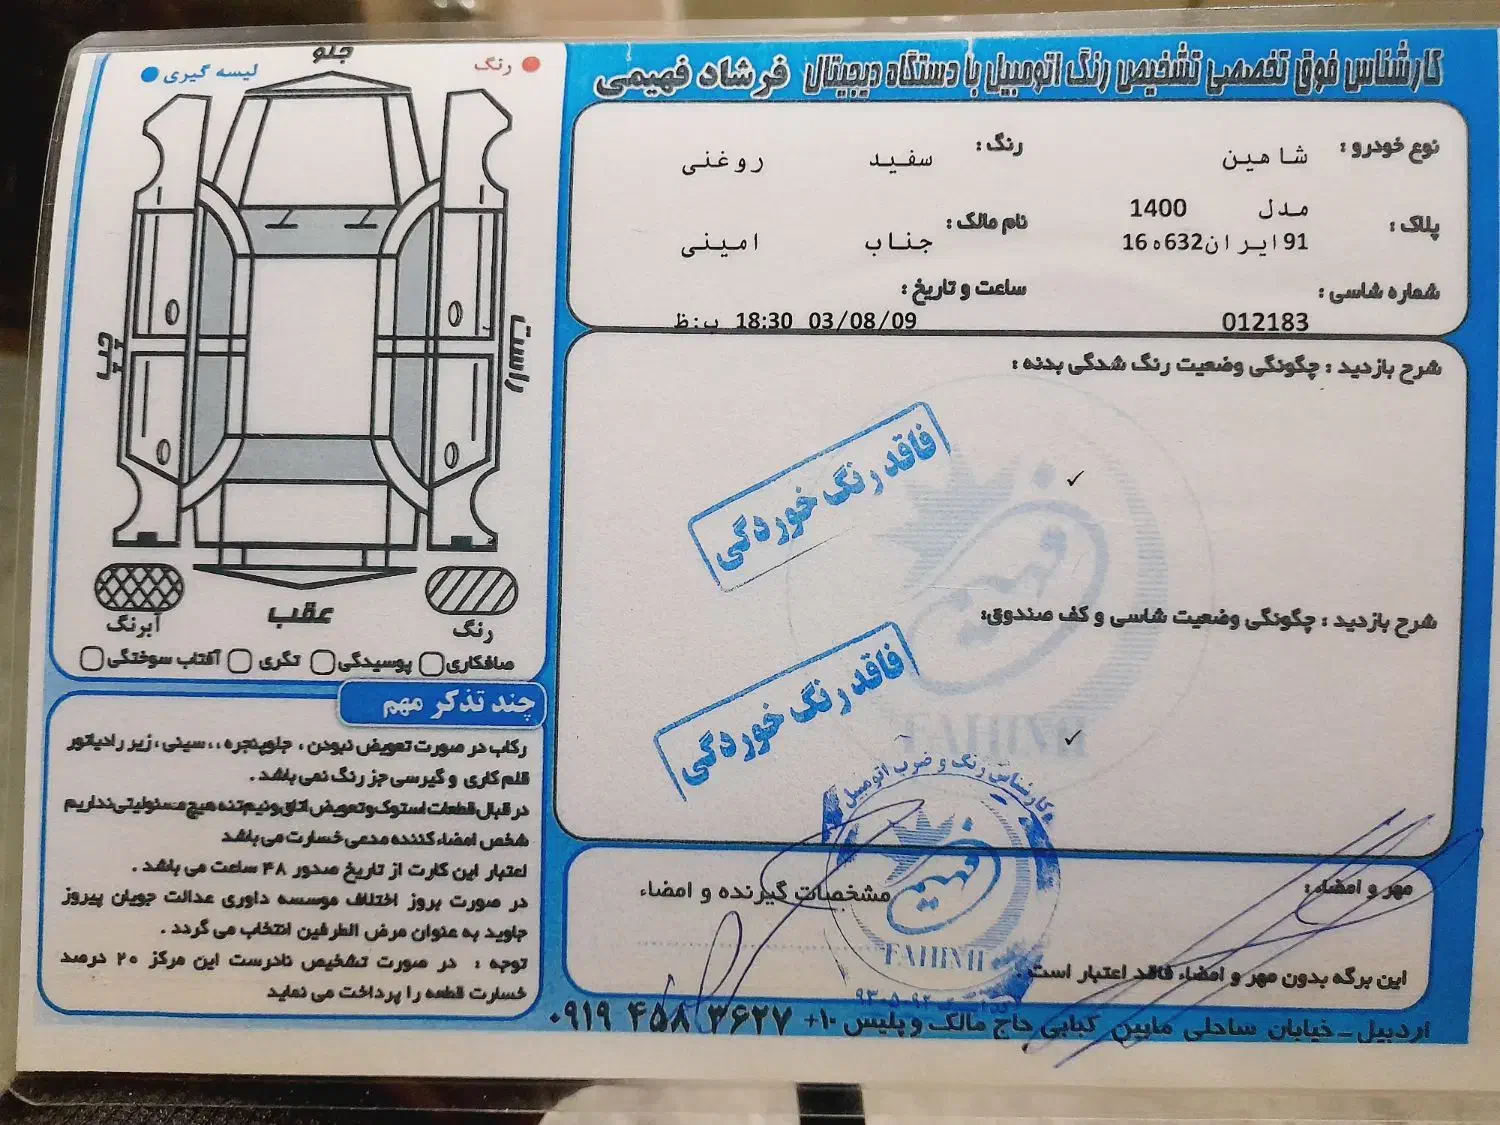 کارشناس فوق تخصصی تشخیص رنگ اتومبیل با دستگاه دیجیتال فرشاد فهیمی
نوع خودرو : شاهین
رنگ : سفید روغنی
مدل 1400
پلاک : 91ایران632ه16
نام مالک : جناب امینی
شماره شاسی : 012183
ساعت و تاریخ : 03/08/09 18:30 ب:ظ
شرح بازدید : چگونگی وضعیت رنگ شدگی بدنه :
✓
فاقد رنگ خوردگی
شرح بازدید : چگونگی وضعیت شاسی و کف صندوق:
✓
فاقد رنگ خوردگی
فهیمی
FAHIMI
مهر و امضاء :
مشخصات گیرنده و امضاء
کارشناس رنگ و ضرب اتومبیل
فهیمی
FAHIMI
این برگه بدون مهر و امضاء فاقد اعتبار است .
اردبیل ـ خیابان ساحلی مابین کبابی حاج مالک و پلیس ۱۰+ ۰۹۱۹ ۴۵۸ ۳۶۲۷
رنگ
لیسه گیری
جلو
راست
چپ
عقب
رنگ
آبرنگ
صافکاری
پوسیدگی
تگری
آفتاب سوختگی
چند تذکر مهم
رکاب در صورت تعویض نبودن ، جلوپنجره ،، سینی ، زیر رادیاتور
قلم کاری و گیرسی جز رنگ نمی باشد .
در قبال قطعات استوک و تعویض اتاق و نیم تنه هیچ مسئولیتی نداریم
شخص امضاء کننده مدعی خسارت می باشد
اعتبار این کارت از تاریخ صدور ۴۸ ساعت می باشد .
در صورت بروز اختلاف موسسه داوری عدالت جویان پیروز
جاوید به عنوان مرض الطرفین انتخاب می گردد .
توجه : در صورت تشخیص نادرست این مرکز ۲۰ درصد
خسارت قطعه را پرداخت می نماید